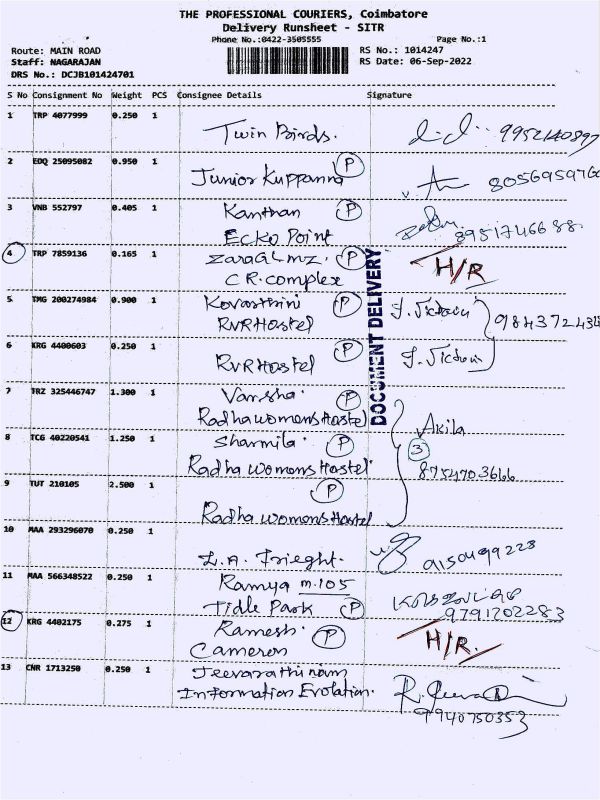 THE PROFESSIONAL COURIERS, Coimbatore
Delivery Runsheet - SITR
Phone No.:0422-3505555 Page No.:1
Route: MAIN ROAD RS No.: 1014247
Staff: NAGARAJAN RS Date: 06-Sep-2022
DRS No.: DCJB101424701
S No Consignment No Weight PCS Consignee Details Signature
1 TRP 4077999 0.250 1
Twin Birds.
2 EDQ 25095082 0.950 1 P
Junior Kuppanna
3 VNB 552797 0.405 1 Kanthan P
Ecko Point 8951746688
4 TRP 7859136 0.165 1 P H/R
C.R. complex
DOCUMENT DELIVERY
5 TMG 200274984 0.900 1 P
RVR Hostel
6 KRG 4400603 0.250 1 P
RVR Hostel
7 TRZ 325446747 1.300 1 Varsha P
Radha womens Hostel Akila
8 TCG 40220541 1.250 1 Sharmila P 3
Radha womens Hostel 8754703666
9 TUT 210105 2.500 1 P
Radha womens Hostel
10 MAA 293296070 0.250 1
L.A. Frieght. 9150499228
11 MAA 566348522 0.250 1 Ramya m.105
Tidle Park P 9791202283
12 KRG 4402175 0.275 1 Ramesh P H/R.
Cameron
13 CNR 1713250 0.250 1 Jeevarathinam
Information Evolation.
9940750353